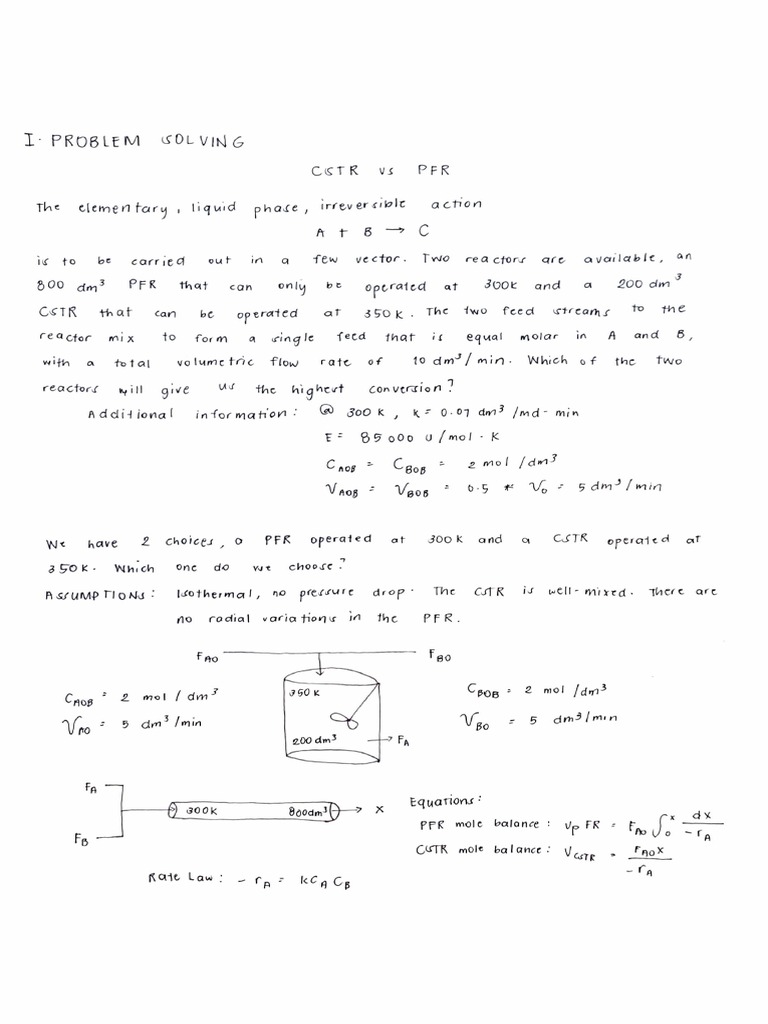 I. PROBLEM SOLVING
CSTR vs PFR
The elementary, liquid phase, irreversible action
A + B → C
is to be carried out in a few vector. Two reactors are available, an
800 dm³ PFR that can only be operated at 300K and a 200 dm³
CSTR that can be operated at 350K. The two feed streams to the
reactor mix to form a single feed that is equal molar in A and B,
with a total volumetric flow rate of 10 dm³/min. Which of the two
reactors will give us the highest conversion?
Additional information: @ 300 K, K = 0.07 dm³/md-min
E = 85000 U/mol·K
C_AOB = C_BOB = 2 mol/dm³
V_AOB = V_BOB = 0.5 * V_o = 5 dm³/min
We have 2 choices, a PFR operated at 300K and a CSTR operated at
350K. Which one do we choose?
ASSUMPTIONS: Isothermal, no pressure drop. The CSTR is well-mixed. There are
no radial variations in the PFR.
F_AO F_BO
350K
C_AOB = 2 mol/dm³
V_AO = 5 dm³/min
200 dm³ → F_A
C_BOB = 2 mol/dm³
V_BO = 5 dm³/min
F_A
300K 800dm³ → X
F_B
Equations:
PFR mole balance: V_PFR = F_AO ∫₀ˣ dx/-r_A
CSTR mole balance: V_CSTR = F_AO X/-r_A
Rate Law: -r_A = KC_A C_B